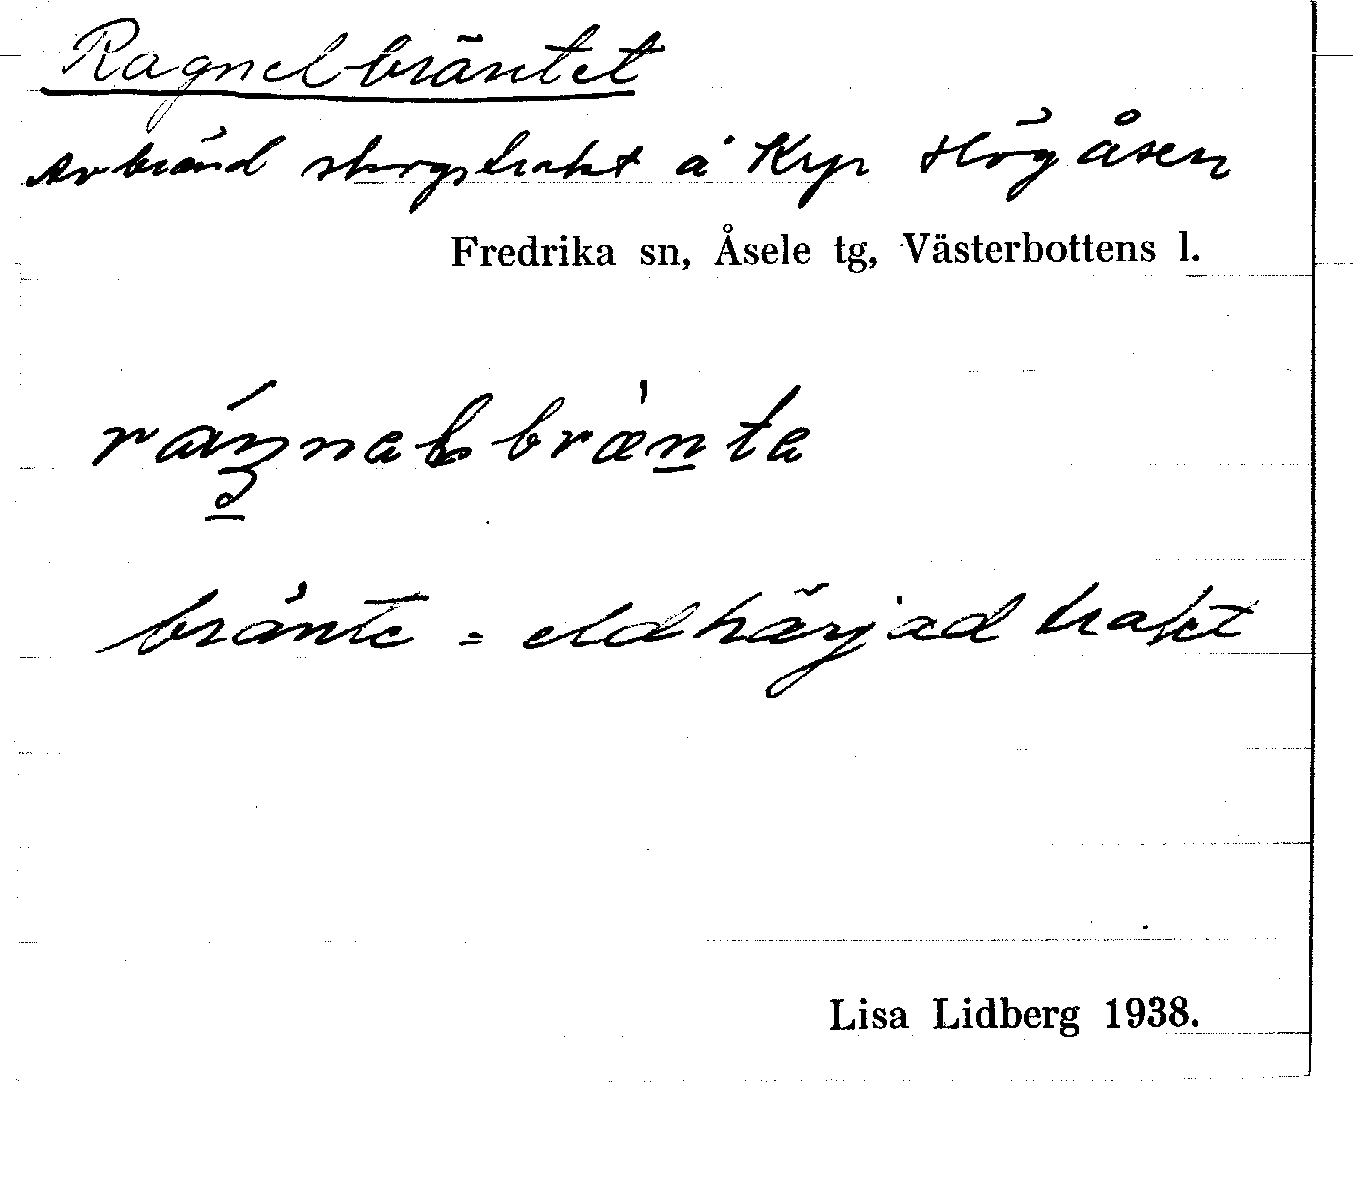 Ragnelbräntet
Avbränd skogstrakt å Krp Högåsen
Fredrika sn, Åsele tg, Västerbottens l.
bränte = eldhärjad trakt
Lisa Lidberg 1938.